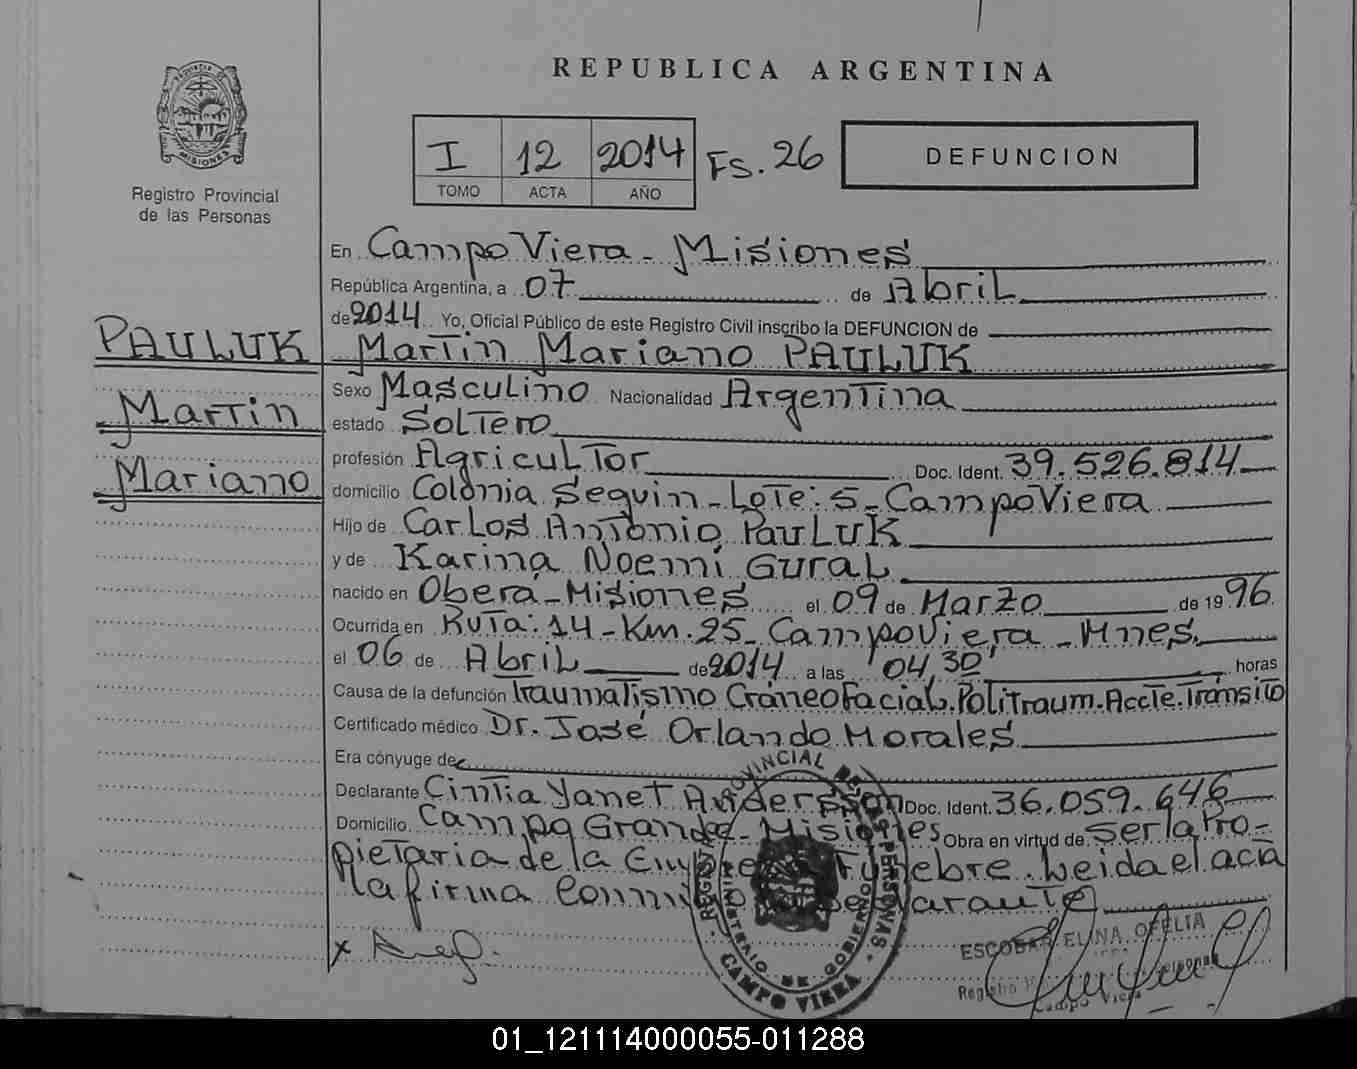 REPUBLICA ARGENTINA
PROVINCIA DE MISIONES
Registro Provincial
de las Personas
I 12 2014 Fs. 26
TOMO ACTA AÑO
DEFUNCION
En Campo Viera - Misiones
República Argentina, a 07 de Abril
de 2014 Yo, Oficial Público de este Registro Civil inscribo la DEFUNCION de
PAULUK Martin Mariano PAULUK
Sexo Masculino Nacionalidad Argentina
Martin
estado Soltero
profesión Agricultor Doc. Ident. 39.526.814
Mariano
domicilio Colonia Seguin - Lote: 5 - Campo Viera
Hijo de Carlos Antonio Pauluk
y de Karina Noemi Gural
nacido en Oberá - Misiones el 09 de Marzo de 1996
Ocurrida en Ruta: 14 - Km. 25 - Campo Viera - Mnes.
el 06 de Abril de 2014 a las 04,30' horas
Causa de la defunción Traumatismo Craneofacial. Politraum. Accte. Tránsito
Certificado médico Dr. José Orlando Morales
Era cónyuge de
Declarante Cintia Yanet Andersson Doc. Ident. 36.059.646
Domicilio Campo Grande - Misiones Obra en virtud de ser la Pro-
pietaria de la Empresa Fúnebre. Leida el acta
la firma conmigo la declarante
REGISTRO PROVINCIAL DE LAS PERSONAS
MINISTERIO DE GOBIERNO
CAMPO VIERA
x
ESCOBAR ELINA OFELIA
Registro Personas
Campo Viera
01_121114000055-011288